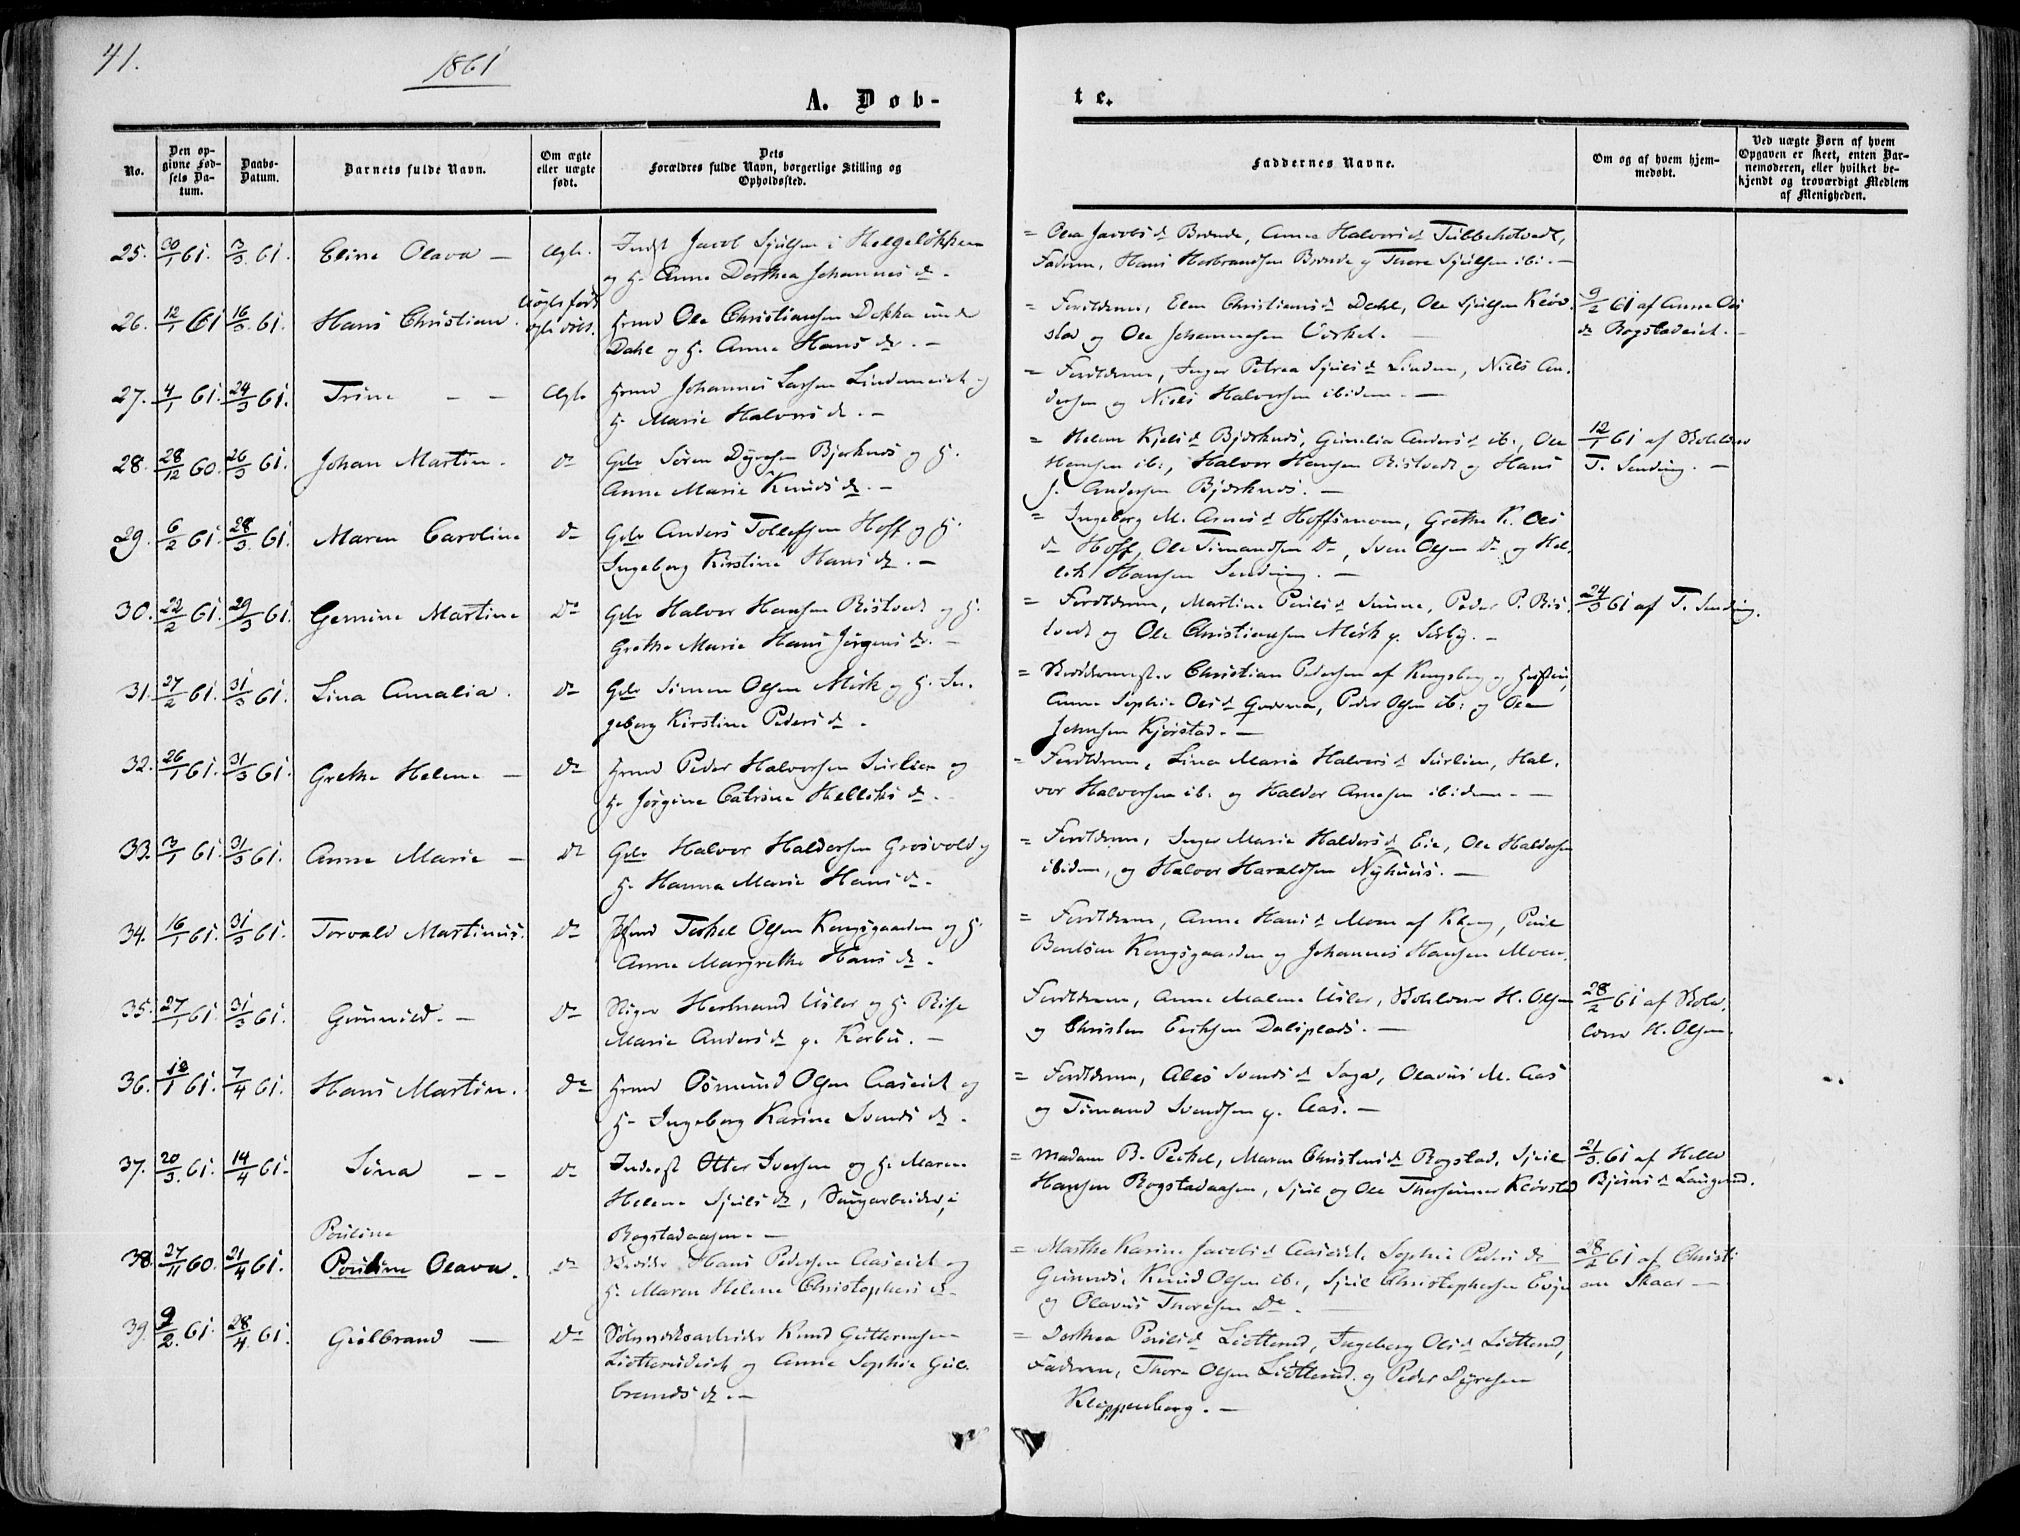 41.
1861
A. Døb-
te.
No.
Den op-
givne Fød-
sels Da-
tum.
Daabs-
Datum.
Barnets fulde Navn.
Om ægte
eller uægte
født.
Dets
Forældres fulde Navn, borgerlige Stilling og
Opholdssted.
Faddernes Navne.
Om og af hvem hjem-
medøbt.
Ved uægte Børn af hvem
Opgaven er skeet, enten Bar-
nemoderen, eller hvilket be-
kjendt og troværdigt Medlem
af Menigheden.
25. 30/1 61. 3/3 61. Eline Olava — Ægte. Inderst Jacob Sjulsen i Helgeløkken
og H. Anne Dorthea Johannesd.
= Olea Jacobsd Brønde, Anne Halvorsd
Faderen, Hans Herbrandsen Brønde og Thore Sjulsen ib. —
26. 12/1 61 16/3 61. Hans Christian. Uægte født
ægte døbt. Hmd Ole Christiansen Dokka und
Dahl og H. Anne Hansdr. —
= Forældrene, Elen Christiansd Dahl, Ole Sjulsen Kløv-
stad og Ole Johannesen Virket. —
9/2 61 af Anne Ols
dr Rogstadeiet. —
27. 4/1 61. 24/3 61. Trine — — Ægte Hmd Johannes Larsen Lindemeiet og
H. Marie Halvorsdr. —
= Forældrene, Inger Petrea Sjulsd Lindem, Niels An-
dersen og Niels Halvorsen ibidem. —
28. 28/12 60. 26/3 61. Johan Martin. do Gdb Søren Dyresen Bjerknes og H.
Anne Marie Knudsdr. —
= Helene Kjelsd Bjørknes, Andersd ib., Ole
Hansen ib., Halvor Hansen Ristvedt og Hans
J. Andersen Bjørknes. —
12/1 61 af Skolelærer
T. Sending. —
29. 6/2 61. 28/3 61. Maren Caroline do Gdb Anders Tollefsen Hoff og H.
Ingeborg Kirstine Hansdr. —
= Ingeborg M. Arnesd Hoffsmoen, Grethe K. Ols
dr Hoff, Ole Simandsen do, Sven Olsen do og Hel-
lek Hansen Sending. —
30. 22/2 61. 29/3 61. Gemine Martine do Gdb Halvor Hansen Ristvedt og H.
Grethe Marie Hans Jørgensdr. —
= Forældrene, Martine Poulsd Sunne, Peder P. Rist-
vedt og Ole Christiansen Mørk p. Sørby. —
24/3 61 af T. Sending.
31. 27/2 61. 31/3 61. Lina Amalia. do Gdb Simen Olsen Mørk og H. In-
geborg Kirstine Pedersdr.
= Skreddermester Christian Pedersen af Kongsberg og Hustru,
Anne Sophie Olsd Peder Olsen ib. og Ole
Johnsen Kjørstad. —
32. 26/1 61. 31/3 61. Grethe Helene — do Hmd Peder Halvorsen Surlien og
H. Jørgine Catrine Helleksdr.
= Forældrene, Lina Marie Halvorsd Surlien, Hal-
vor Halvorsen ib. og Haldor Arnesen ibidem. —
33. 3/1 61. 31/3 61. Anne Marie — do Gdb Halvor Haldorsen Grosvold og
H. Hanna Marie Hansdr.
= Forældrene, Inger Marie Haldorsd Eie, Ole Haldorsen
ibidem, og Halvor Haraldsen Nyhuus. —
34. 16/1 61. 31/3 61. Torvald Martinus. do Hmd Terkel Olsen Kongsgaarden og H.
Anne Margrethe Hansdr.
= Forældrene, Anne Hansd Moen af Kberg, Poul
Bentsen Kongsgaarden og Johannes Hansen Moen.
35. 27/1 61. 31/3 61. Gunnild. — do Stiger Herbrand Usler og H. Risse
Marie Andersdr p. Korbu. —
Forældrene, Anne Malene Usler, Skolelærer H. Olsen
og Christen Eriksen Dalsplads. —
28/2 61 af Skole-
lærer H. Olsen.
36. 10/1 61. 7/4 61. Hans Martin. do Hmd Osmund Olsen Aaseiet og
H. Ingeborg Karine Svendsdr.
= Forældrene, Ales Svendsd Saga, Olavus M. Aas
og Simand Svendsen p. Aas. —
37. 20/3 61. 14/4 61. Sina — — do Inderst Otter Iversen og H. Maren
Helene Sjulsdr, Saugarbeider i
Rogstadaasen. —
= Madam B. Peckel, Maren Christensd Rogstad, Sjul
Hansen Rogstadaasen, Sjul og Ole Thorsønner Kløvstad
21/3 61 af Helle
Bjørnsd Laugerud.
38. 27/11 60. 21/4 61. Pouline
Pouline Olava. do Skredder Hans Pedersen Aaseiet og
H. Maren Helene Christophersdr.
= Marthe Karine Jacobsd Aaseiet, Sophie Pedersdr
Gunnes, Knud Olsen ib., Sjul Christophersen Evju
og Olavus Thoresen do. —
28/2 61 af Christi-
an Skaar —
39. 9/2 61. 28/4 61. Gulbrand — do Sølvverksarbeider Knud Guttormsen
Lietterudeiet og Anne Sophie Gul-
brandsdr. —
= Dorthea Poulsd Liatterud, Ingeborg Olsd Liatterud,
Faderen, Thore Olsen Liatterud og Peder Dyresen
Kleppenberg. —